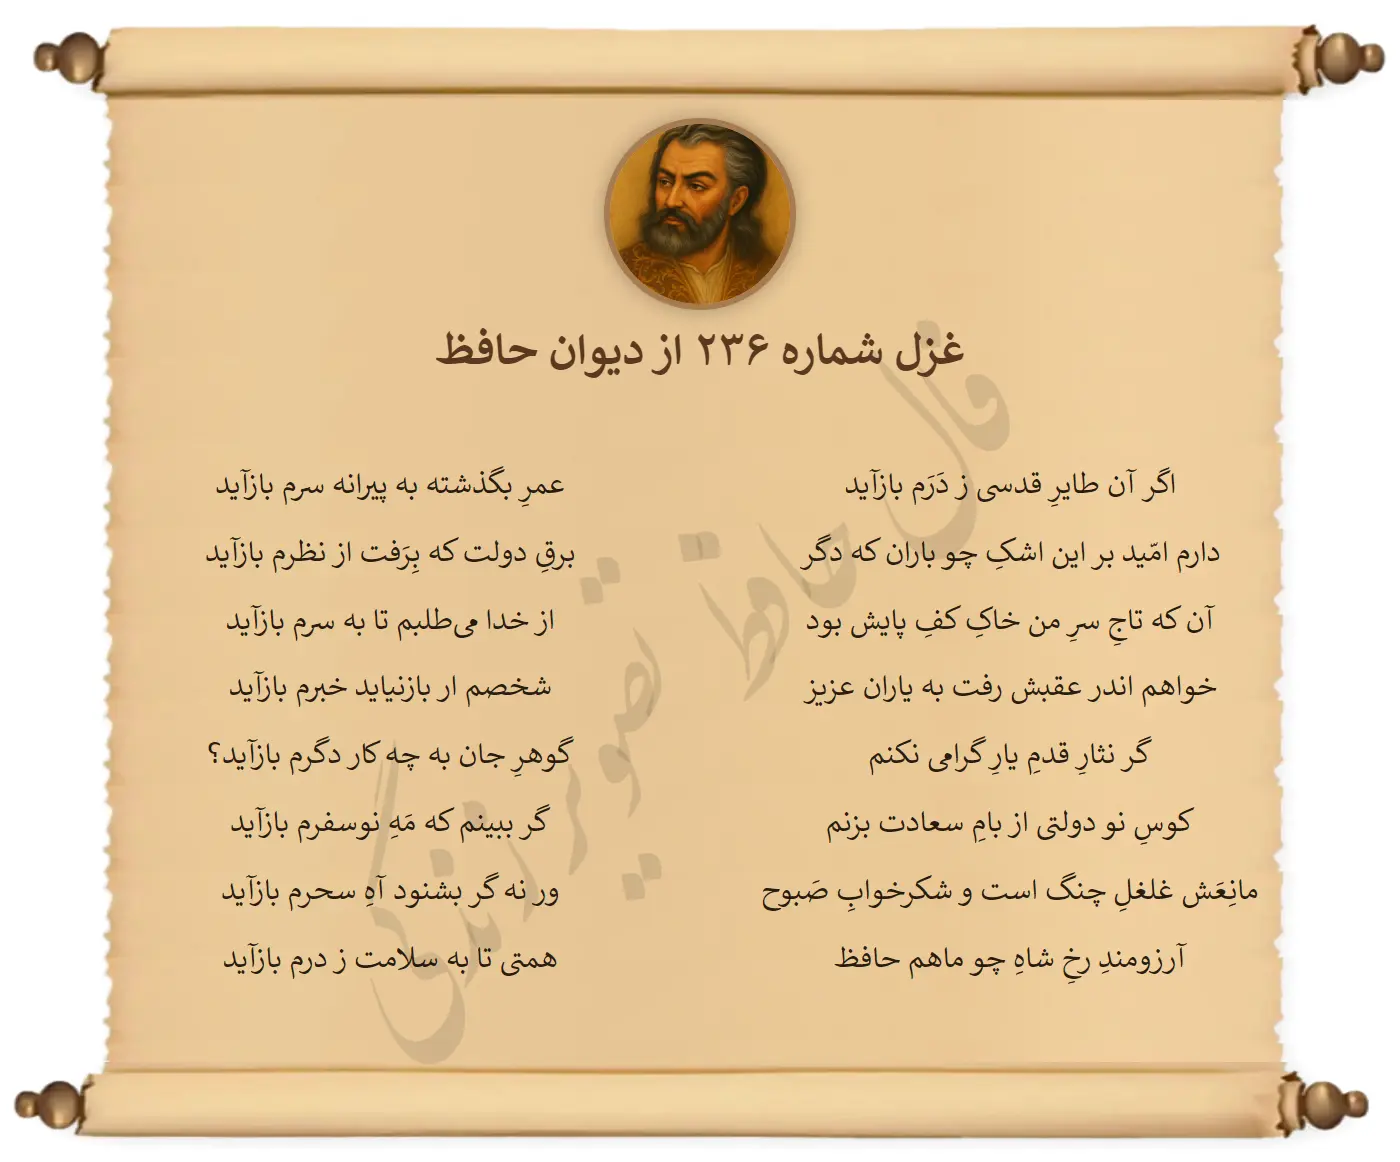 غزل شماره ۲۳۶ از دیوان حافظ
اگر آن طایرِ قدسی ز دَرَم بازآید
عمرِ بگذشته به پیرانه سرم بازآید
دارم امّید بر این اشکِ چو باران که دگر
برقِ دولت که بِرَفت از نظرم بازآید
آن که تاجِ سرِ من خاکِ کفِ پایش بود
از خدا می‌طلبم تا به سرم بازآید
خواهم اندر عقبش رفت به یاران عزیز
شخصم ار بازنیاید خبرم بازآید
گر نثارِ قدمِ یارِ گرامی نکنم
گوهرِ جان به چه کار دگرم بازآید؟
کوسِ نو دولتی از بامِ سعادت بزنم
گر ببینم که مَهِ نوسفرم بازآید
مانِعَش غلغلِ چنگ است و شکرخوابِ صَبوح
ور نه گر بشنود آهِ سحرم بازآید
آرزومندِ رخِ شاهِ چو ماهم حافظ
همتی تا به سلامت ز درم بازآید
فال حافظ تصویر زندگی